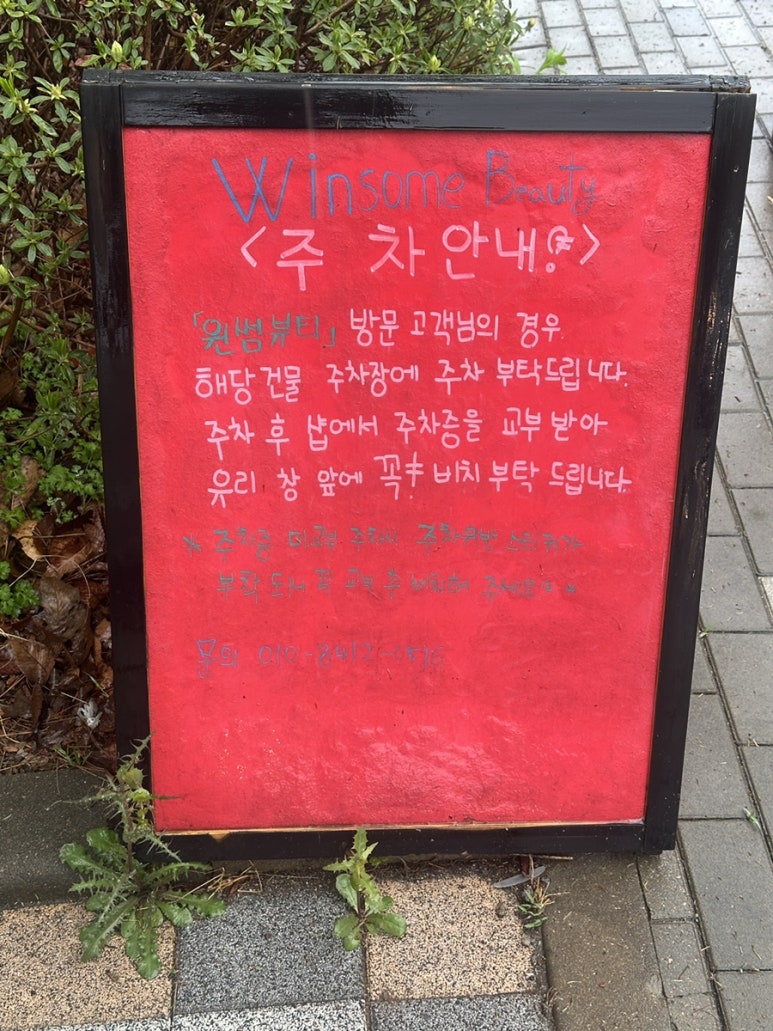 Winsome Beauty
<주 차 안내!>
「윈썸뷰티」 방문 고객님의 경우
해당 건물 주차장에 주차 부탁드립니다.
주차 후 샵에서 주차증을 교부 받아
유리 창 앞에 꼭! 비치 부탁 드립니다.
* 주차증 미교부 주차시 주차위반 스티커가
부착 되니 꼭 교부 후 비치해 주세요
문의 010-8412-